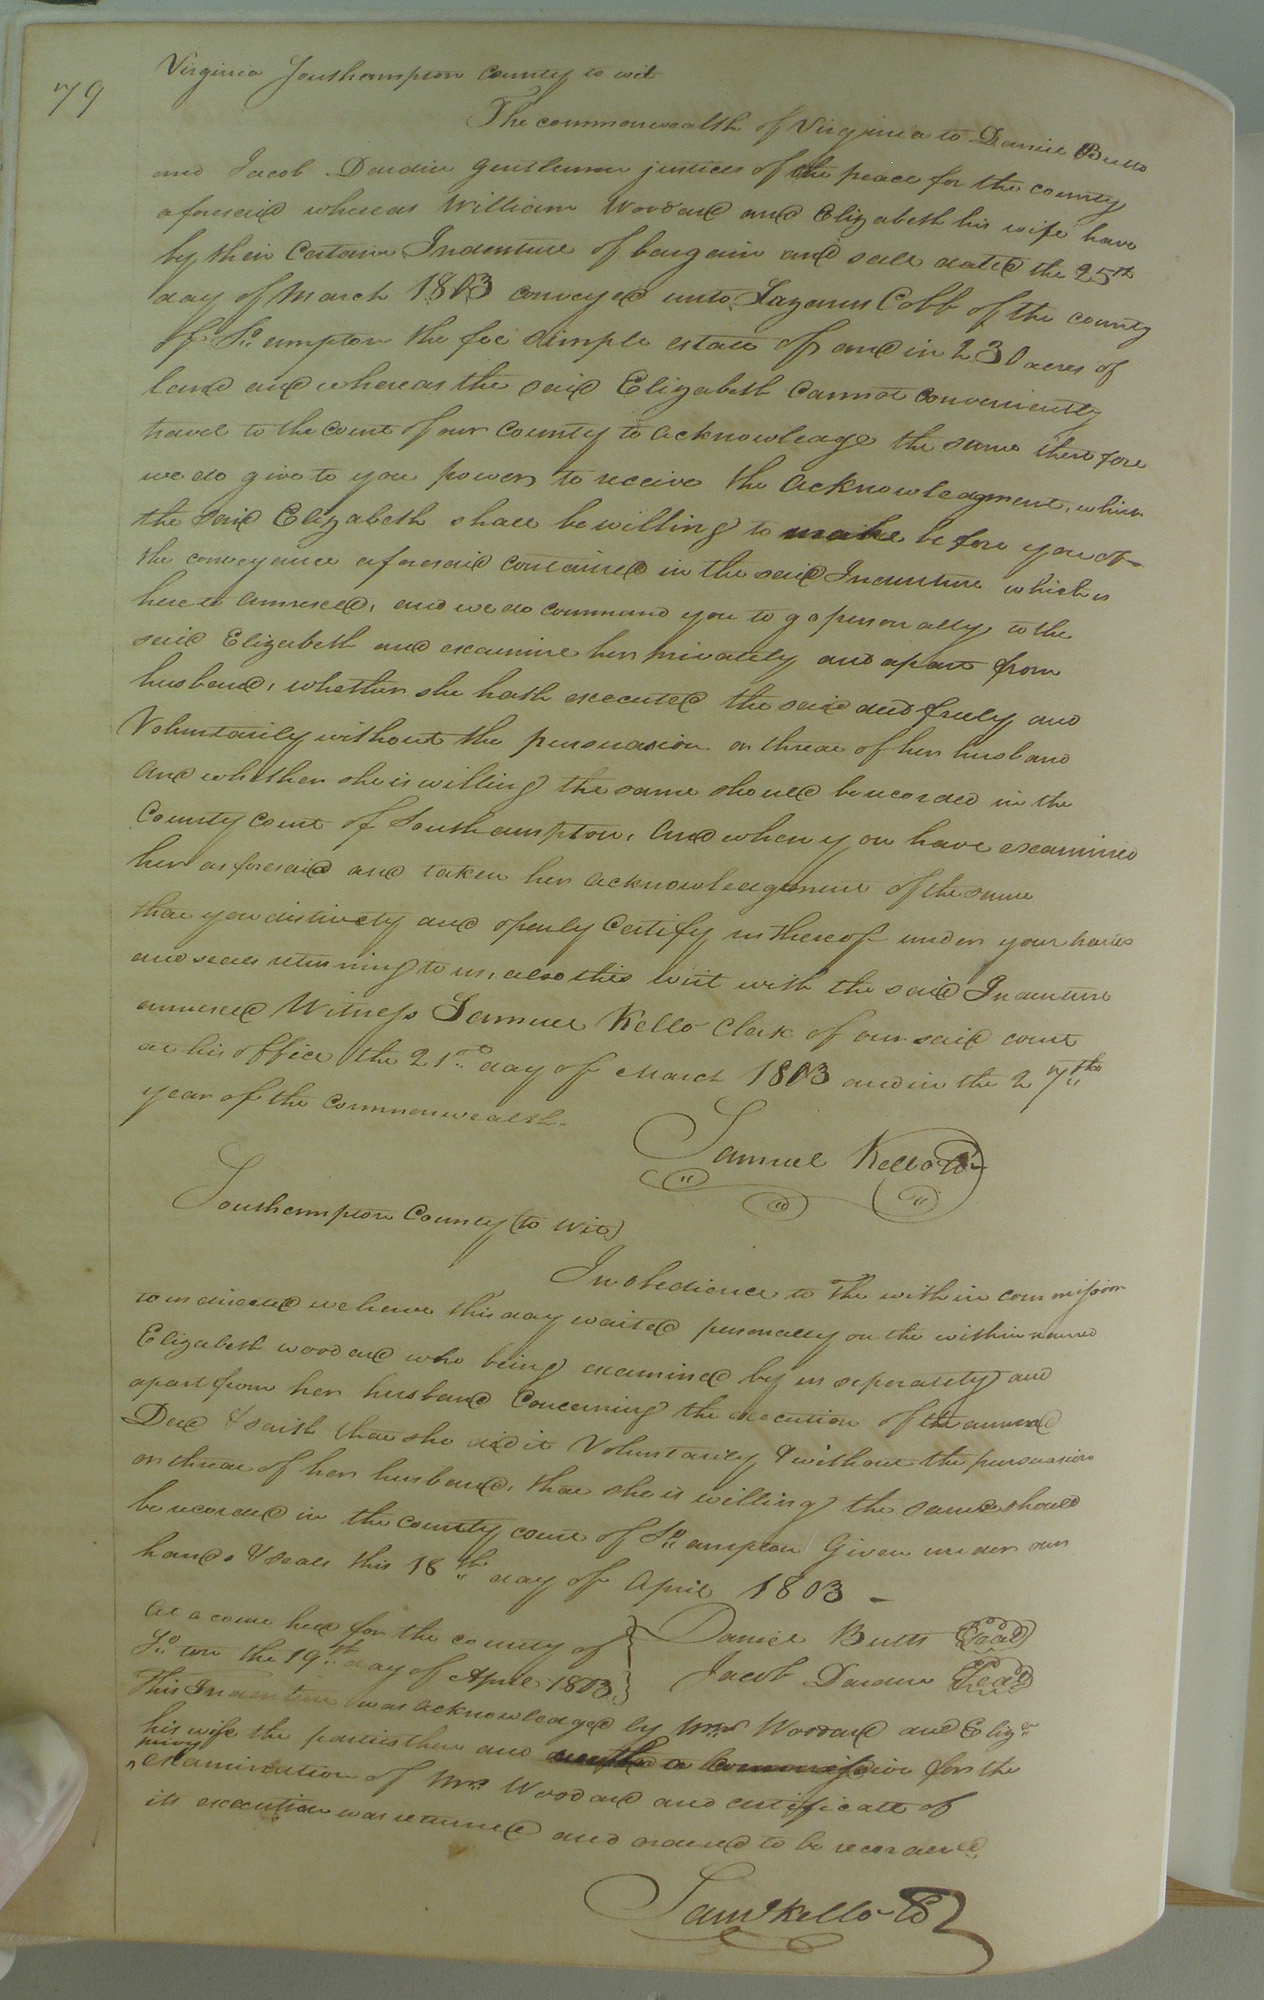 79
Virginia Southampton County to wit
The commonwealth of Virginia to Daniel Butts
and Jacob Darden gentlemen justices of the peace for the county
aforesaid whereas William Woodard and Elizabeth his wife have
by their Certain Indenture of bargain and sale dated the 25th
day of March 1803 conveyed unto Lazarus Cobb of the county
of So. ampton the fee simple estate of and in 230 acres of
land and whereas the said Elizabeth Cannot conveniently
travel to the Court of our County to acknowledge the same therefore
we do give to you power to receive the acknowledgment, which
the said Elizabeth shall be willing to make before you of
the conveyance aforesaid contained in the said Indenture which is
hereto annexed, and we do command you to go personally to the
said Elizabeth and examine her privately and apart from
husband, whether she hath executed the said deed freely and
Voluntarily without the persuasion or threat of her husband
and whether she is willing the same should be recorded in the
County Court of Southampton, And when you have examined
her as foresaid and taken her acknowledgment of the same
that you distinctly and openly Certify us thereof under your hands
and seals returning to us, also this writ with the said Indenture
annexed Witness Samuel Kello Clerk of our said court
at his office the 21st day of March 1803 and in the 27th
year of the Commonwealth.
Samuel Kello
Southampton County (to wit)
In obedience to The within commission
to us directed we have this day waited personally on the within named
Elizabeth woodard who being examined by us seperately and
apart from her husband Concerning the execution of the annexed
Deed & saith that she did it Voluntarily & without the persuasion
or threat of her husband, that she is willing the same should
be recorded in the county court of So. ampton Given under our
hands & seals this 18th day of April 1803 -
At a court held for the county of } Daniel Butts (Seal)
So. ton the 19th day of April 1803 } Jacob Darden (Seal)
This Indenture was acknowledged by Wm Woodard and Eliza
his wife the parties thereto and a Commission for the
privy
examination of Mrs. Woodard and certificate of
its execution was returned and ordered to be recorded
Saml Kello